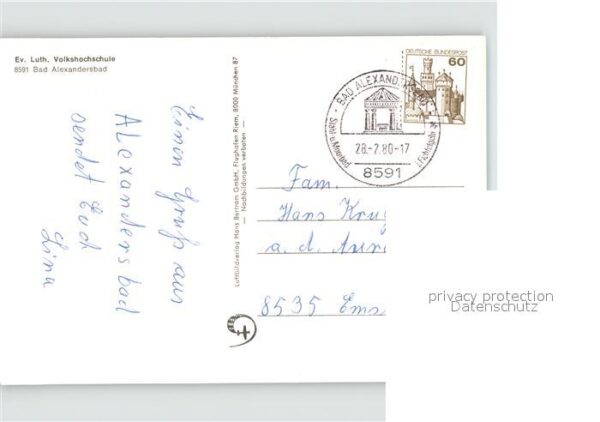 Ev. Luth. Volkshochschule
8591 Bad Alexandersbad
Einen Gruß aus
Alexandersbad
sendet Euch
Lina
Luftbildverlag Hans Bertram GmbH, Flughafen Riem, 8000 München 87
— Nachbildungen verboten —
DEUTSCHE BUNDESPOST
60
BAD ALEXANDERSBAD
Stahl- u. Moorbad
i. Fichtelgeb.
28.-7.80-17
8591
Fam.
Hans Krug
a. d.
8535 Ems
privacy protection
Datenschutz